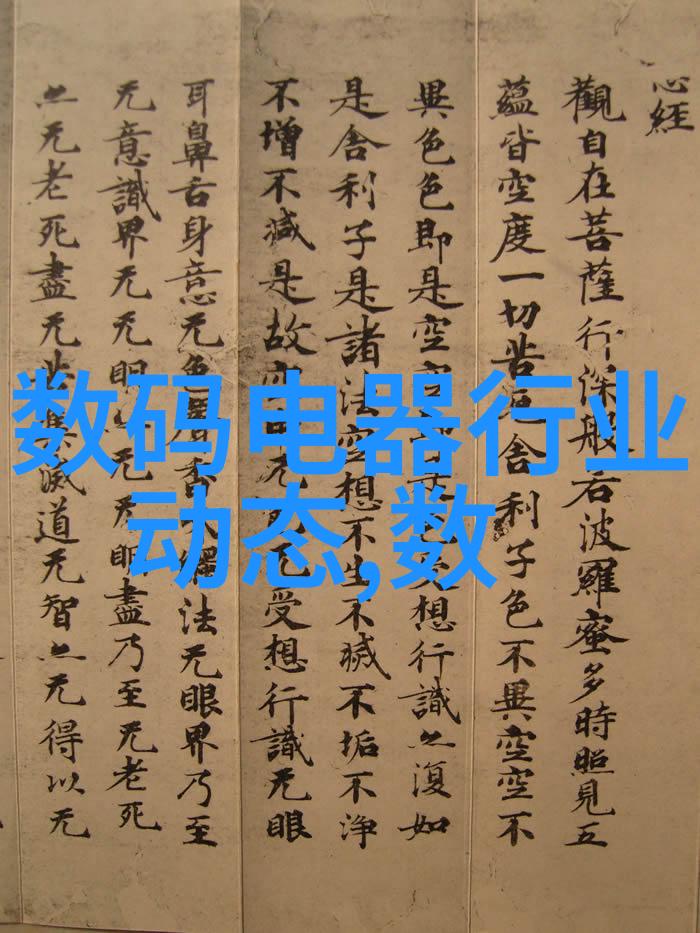 心經
觀自在菩薩行深般若波羅蜜多時照見五
蘊皆空度一切苦厄舍利子色不異空空不
異色色即是空空即是色受想行識亦復如
是舍利子是諸法空想不生不滅不垢不淨
不增不減是故空中无色无受想行識无眼
耳鼻舌身意无色聲香味觸法无眼界乃至
无意識界无无明亦无无明盡乃至无老死
亦无老死盡无苦集滅道无智亦无得以无
数码电器行业
动态,数